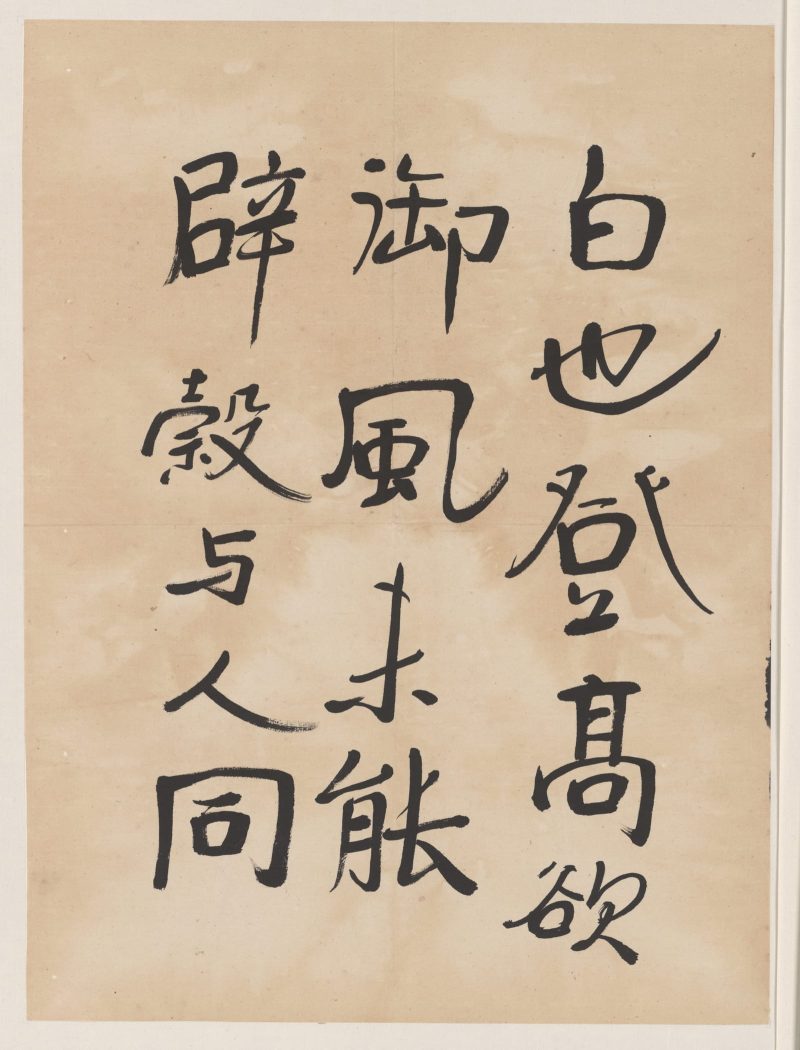 白也登髙欲
御風未能
辟穀与人同